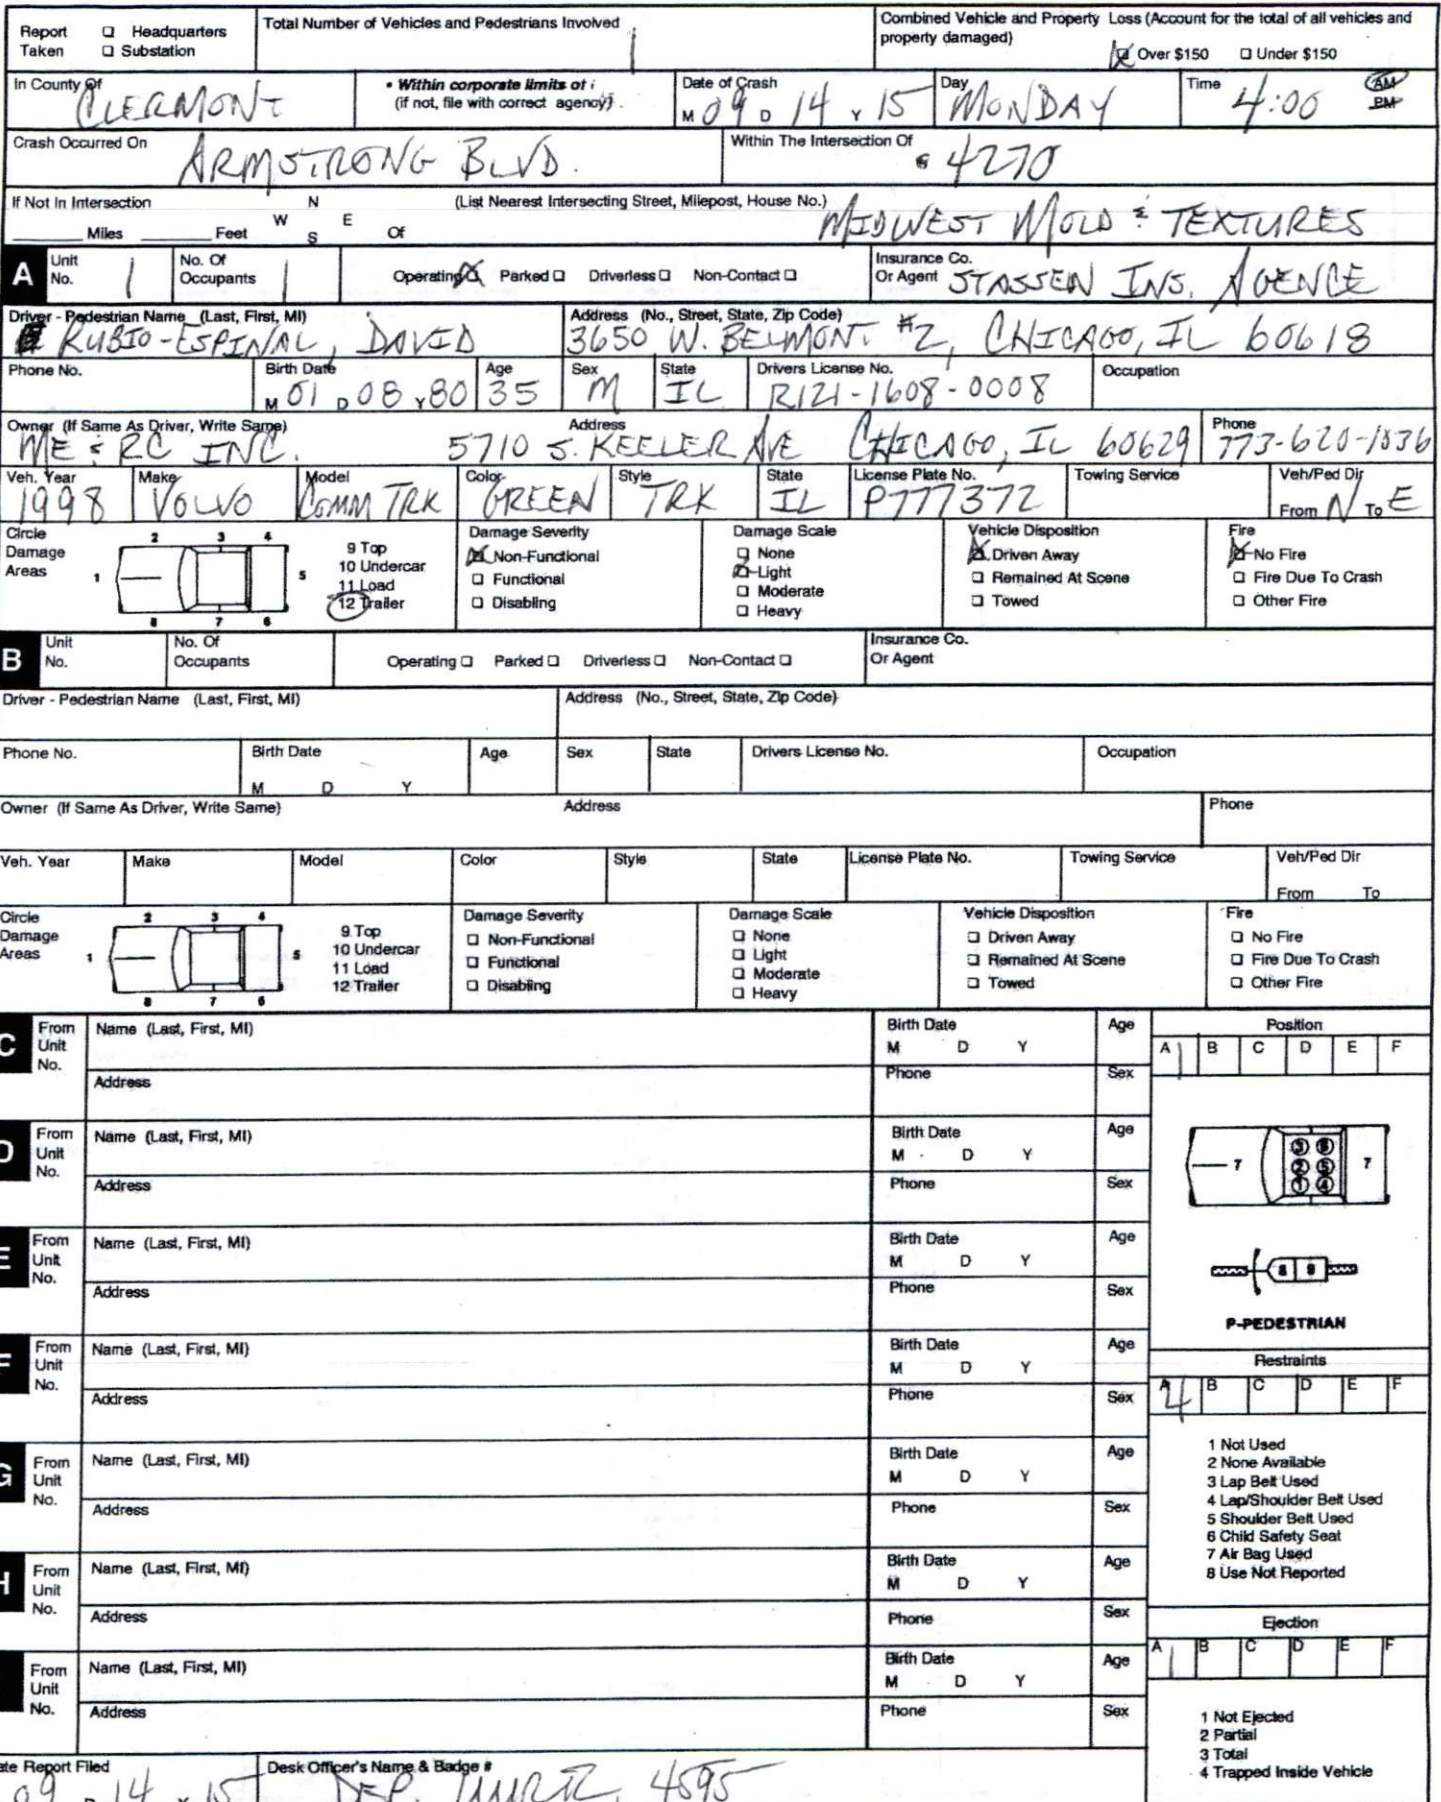 Report Taken ❑ Headquarters ❑ Substation
Total Number of Vehicles and Pedestrians Involved 1
Combined Vehicle and Property Loss (Account for the total of all vehicles and property damaged) ☒ Over $150 ❑ Under $150
In County Of CLERMONT
• Within corporate limits of (if not, file with correct agency)
Date of Crash M 09 D 14 Y 15
Day MONDAY
Time 4:00 AM PM
Crash Occurred On ARMSTRONG BLVD.
Within The Intersection Of 4270
If Not In Intersection ____ Miles ____ Feet N W E S Of
(List Nearest Intersecting Street, Milepost, House No.) MIDWEST MOLD & TEXTURES
A Unit No. 1
No. Of Occupants 1
Operating ☒ Parked ❑ Driverless ❑ Non-Contact ❑
Insurance Co. Or Agent STASSEN INS. AGENCE
Driver - Pedestrian Name (Last, First, MI) RUBIO-ESPINAL, DAVID
Address (No., Street, State, Zip Code) 3650 W. BELMONT #2, CHICAGO, IL 60618
Phone No.
Birth Date M 01 D 08 Y 80
Age 35
Sex M
State IL
Drivers License No. R121-1608-0008
Occupation
Owner (If Same As Driver, Write Same) ME & RC INC.
Address 5710 S. KEELER AVE CHICAGO, IL 60629
Phone 773-620-1836
Veh. Year 1998
Make VOLVO
Model COMM TRK
Color GREEN
Style TRK
State IL
License Plate No. P777372
Towing Service
Veh/Ped Dir From N To E
Circle Damage Areas
1 2 3 4 5 6 7 8
9 Top
10 Undercar
11 Load
12 Trailer
Damage Severity
☒ Non-Functional
❑ Functional
❑ Disabling
Damage Scale
❑ None
☒ Light
❑ Moderate
❑ Heavy
Vehicle Disposition
☒ Driven Away
❑ Remained At Scene
❑ Towed
Fire
☒ No Fire
❑ Fire Due To Crash
❑ Other Fire
B Unit No.
No. Of Occupants
Operating ❑ Parked ❑ Driverless ❑ Non-Contact ❑
Insurance Co. Or Agent
Driver - Pedestrian Name (Last, First, MI)
Address (No., Street, State, Zip Code)
Phone No.
Birth Date M D Y
Age
Sex
State
Drivers License No.
Occupation
Owner (If Same As Driver, Write Same)
Address
Phone
Veh. Year
Make
Model
Color
Style
State
License Plate No.
Towing Service
Veh/Ped Dir From To
Circle Damage Areas
1 2 3 4 5 6 7 8
9 Top
10 Undercar
11 Load
12 Trailer
Damage Severity
❑ Non-Functional
❑ Functional
❑ Disabling
Damage Scale
❑ None
❑ Light
❑ Moderate
❑ Heavy
Vehicle Disposition
❑ Driven Away
❑ Remained At Scene
❑ Towed
Fire
❑ No Fire
❑ Fire Due To Crash
❑ Other Fire
C From Unit No.
Name (Last, First, MI)
Birth Date M D Y
Age
Address
Phone
Sex
D From Unit No.
Name (Last, First, MI)
Birth Date M D Y
Age
Address
Phone
Sex
E From Unit No.
Name (Last, First, MI)
Birth Date M D Y
Age
Address
Phone
Sex
F From Unit No.
Name (Last, First, MI)
Birth Date M D Y
Age
Address
Phone
Sex
G From Unit No.
Name (Last, First, MI)
Birth Date M D Y
Age
Address
Phone
Sex
H From Unit No.
Name (Last, First, MI)
Birth Date M D Y
Age
Address
Phone
Sex
From Unit No.
Name (Last, First, MI)
Birth Date M D Y
Age
Address
Phone
Sex
Position
A 1 B C D E F
7 3 6 2 5 1 4 7
8 9
P-PEDESTRIAN
Restraints
A 4 B C D E F
1 Not Used
2 None Available
3 Lap Belt Used
4 Lap/Shoulder Belt Used
5 Shoulder Belt Used
6 Child Safety Seat
7 Air Bag Used
8 Use Not Reported
Ejection
A 1 B C D E F
1 Not Ejected
2 Partial
3 Total
4 Trapped Inside Vehicle
ate Report Filed 09 D 14 Y 15
Desk Officer's Name & Badge # DEP. 4595